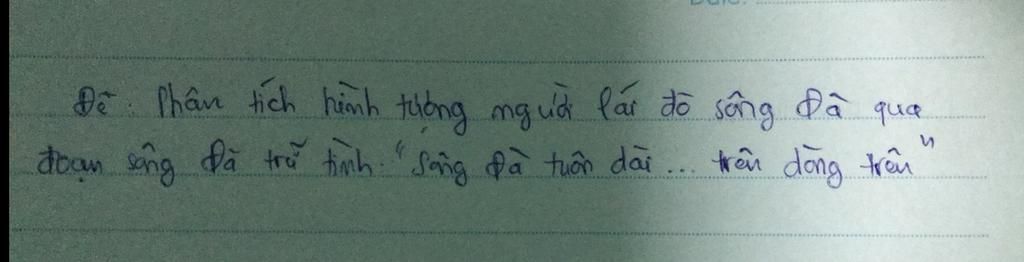 Đề: Phân tích hình tượng người lái đò sông Đà qua
đoạn sông Đà trữ tình. "Sông Đà tuôn dài... trên dòng trên"